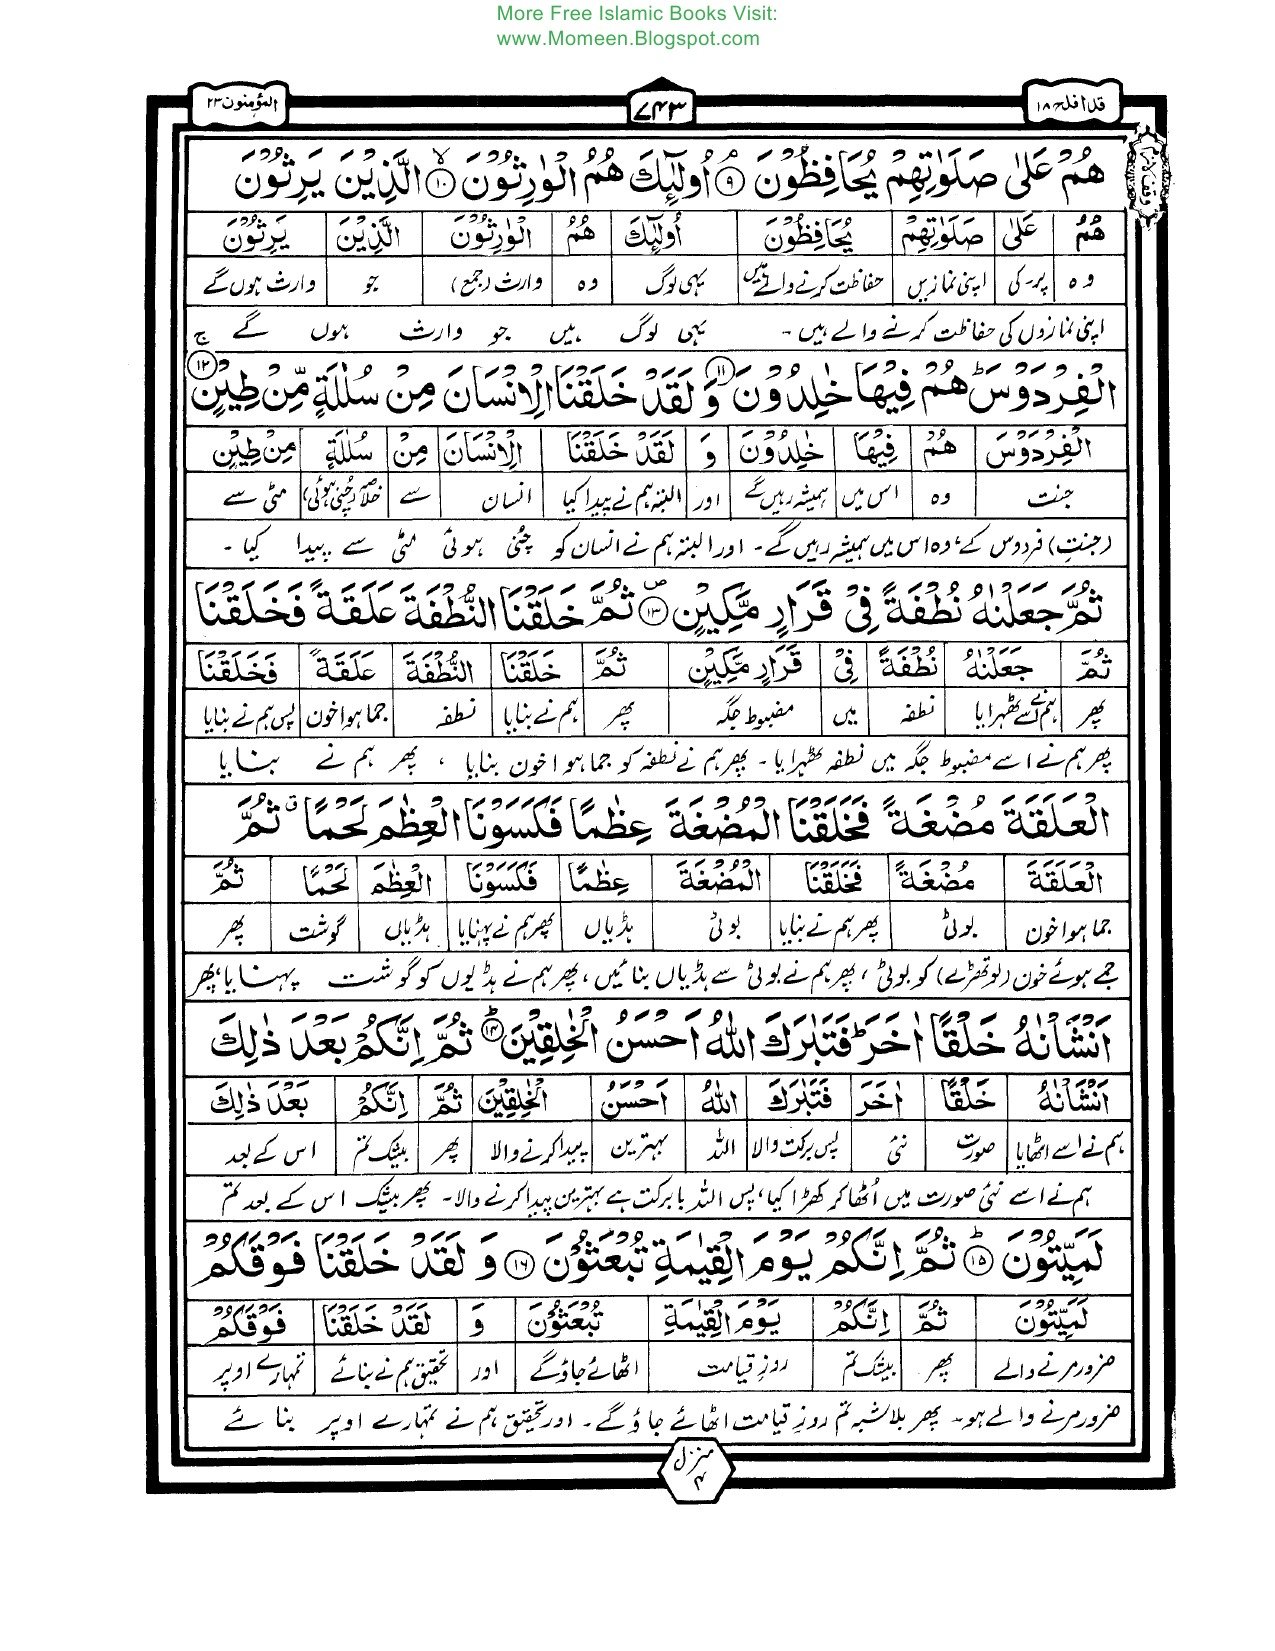 More Free Islamic Books Visit:
www.Momeen.Blogspot.com
قد افلح ١٨ ۷۴۳ المؤمنون ٢٣
هُمْ عَلٰى صَلَوٰتِهِمْ يُحَافِظُوْنَ ۹ۘ اُولٰٓئِكَ هُمُ الْوٰرِثُوْنَ ۱۰ۙ الَّذِيْنَ يَرِثُوْنَ
هُمْ عَلٰى صَلَوٰتِهِمْ يُحَافِظُوْنَ اُولٰٓئِكَ هُمُ الْوٰرِثُوْنَ الَّذِيْنَ يَرِثُوْنَ
وہ پر۔کی اپنی نمازیں حفاظت کرنے والے ہیں یہی لوگ وہ وارث (جمع) جو وارث ہوں گے
اپنی نمازوں کی حفاظت کرنے والے ہیں ۔ یہی لوگ ہیں جو وارث ہوں گے
الْفِرْدَوْسَ ؕ هُمْ فِيْهَا خٰلِدُوْنَ ۱۱ وَ لَقَدْ خَلَقْنَا الْاِنْسَانَ مِنْ سُلٰلَةٍ مِّنْ طِيْنٍ ۱۲ۚ
الْفِرْدَوْسَ هُمْ فِيْهَا خٰلِدُوْنَ وَ لَقَدْ خَلَقْنَا الْاِنْسَانَ مِنْ سُلٰلَةٍ مِنْ طِيْنٍ
جنت وہ اس میں ہمیشہ رہیں گے اور البتہ ہم نے پیدا کیا انسان سے خلاصہ (چنی ہوئی) مٹی سے
(جنت) فردوس کے، وہ اس میں ہمیشہ رہیں گے۔ اور البتہ ہم نے انسان کو چنی ہوئی مٹی سے پیدا کیا ۔
ثُمَّ جَعَلْنٰهُ نُطْفَةً فِيْ قَرَارٍ مَّكِيْنٍ ۱۳۪ ثُمَّ خَلَقْنَا النُّطْفَةَ عَلَقَةً فَخَلَقْنَا
ثُمَّ جَعَلْنٰهُ نُطْفَةً فِيْ قَرَارٍ مَّكِيْنٍ ثُمَّ خَلَقْنَا النُّطْفَةَ عَلَقَةً فَخَلَقْنَا
پھر ہم نے اسے ٹھہرایا نطفہ میں مضبوط جگہ پھر ہم نے بنایا نطفہ جما ہوا خون پس ہم نے بنایا
پھر ہم نے اسے مضبوط جگہ میں نطفہ ٹھہرایا ۔ پھر ہم نے نطفہ کو جما ہوا خون بنایا ، پھر ہم نے بنایا
الْعَلَقَةَ مُضْغَةً فَخَلَقْنَا الْمُضْغَةَ عِظٰمًا فَكَسَوْنَا الْعِظٰمَ لَحْمًا ۗ ثُمَّ
الْعَلَقَةَ مُضْغَةً فَخَلَقْنَا الْمُضْغَةَ عِظٰمًا فَكَسَوْنَا الْعِظٰمَ لَحْمًا ثُمَّ
جما ہوا خون بوٹی پھر ہم نے بنایا بوٹی ہڈیاں پھر ہم نے پہنایا ہڈیاں گوشت پھر
جمے ہوئے خون (لوتھڑے) کو بوٹی ، پھر ہم نے بوٹی سے ہڈیاں بنائیں، پھر ہم نے ہڈیوں کو گوشت پہنایا، پھر
اَنْشَاْنٰهُ خَلْقًا اٰخَرَ ؕ فَتَبٰرَكَ اللّٰهُ اَحْسَنُ الْخٰلِقِيْنَ ۱۴ؕ ثُمَّ اِنَّكُمْ بَعْدَ ذٰلِكَ
اَنْشَاْنٰهُ خَلْقًا اٰخَرَ فَتَبٰرَكَ اللّٰهُ اَحْسَنُ الْخٰلِقِيْنَ ثُمَّ اِنَّكُمْ بَعْدَ ذٰلِكَ
ہم نے اسے اٹھایا صورت نئی پس برکت والا اللہ بہترین پیدا کرنے والا پھر بیشک تم اس کے بعد
ہم نے اسے نئی صورت میں اُٹھا کر کھڑا کیا، پس اللہ بابرکت ہے بہترین پیدا کرنے والا۔ پھر بیشک اس کے بعد تم
لَمَيِّتُوْنَ ۱۵ؕ ثُمَّ اِنَّكُمْ يَوْمَ الْقِيٰمَةِ تُبْعَثُوْنَ ۱۶ وَ لَقَدْ خَلَقْنَا فَوْقَكُمْ
لَمَيِّتُوْنَ ثُمَّ اِنَّكُمْ يَوْمَ الْقِيٰمَةِ تُبْعَثُوْنَ وَ لَقَدْ خَلَقْنَا فَوْقَكُمْ
ضرور مرنے والے پھر بیشک تم روزِ قیامت اٹھائے جاؤ گے اور تحقیق ہم نے بنائے تمہارے اوپر
ضرور مرنے والے ہو۔ پھر بلاشبہ تم روزِ قیامت اٹھائے جاؤ گے۔ اور تحقیق ہم نے تمہارے اوپر بنائے
منزل ۴